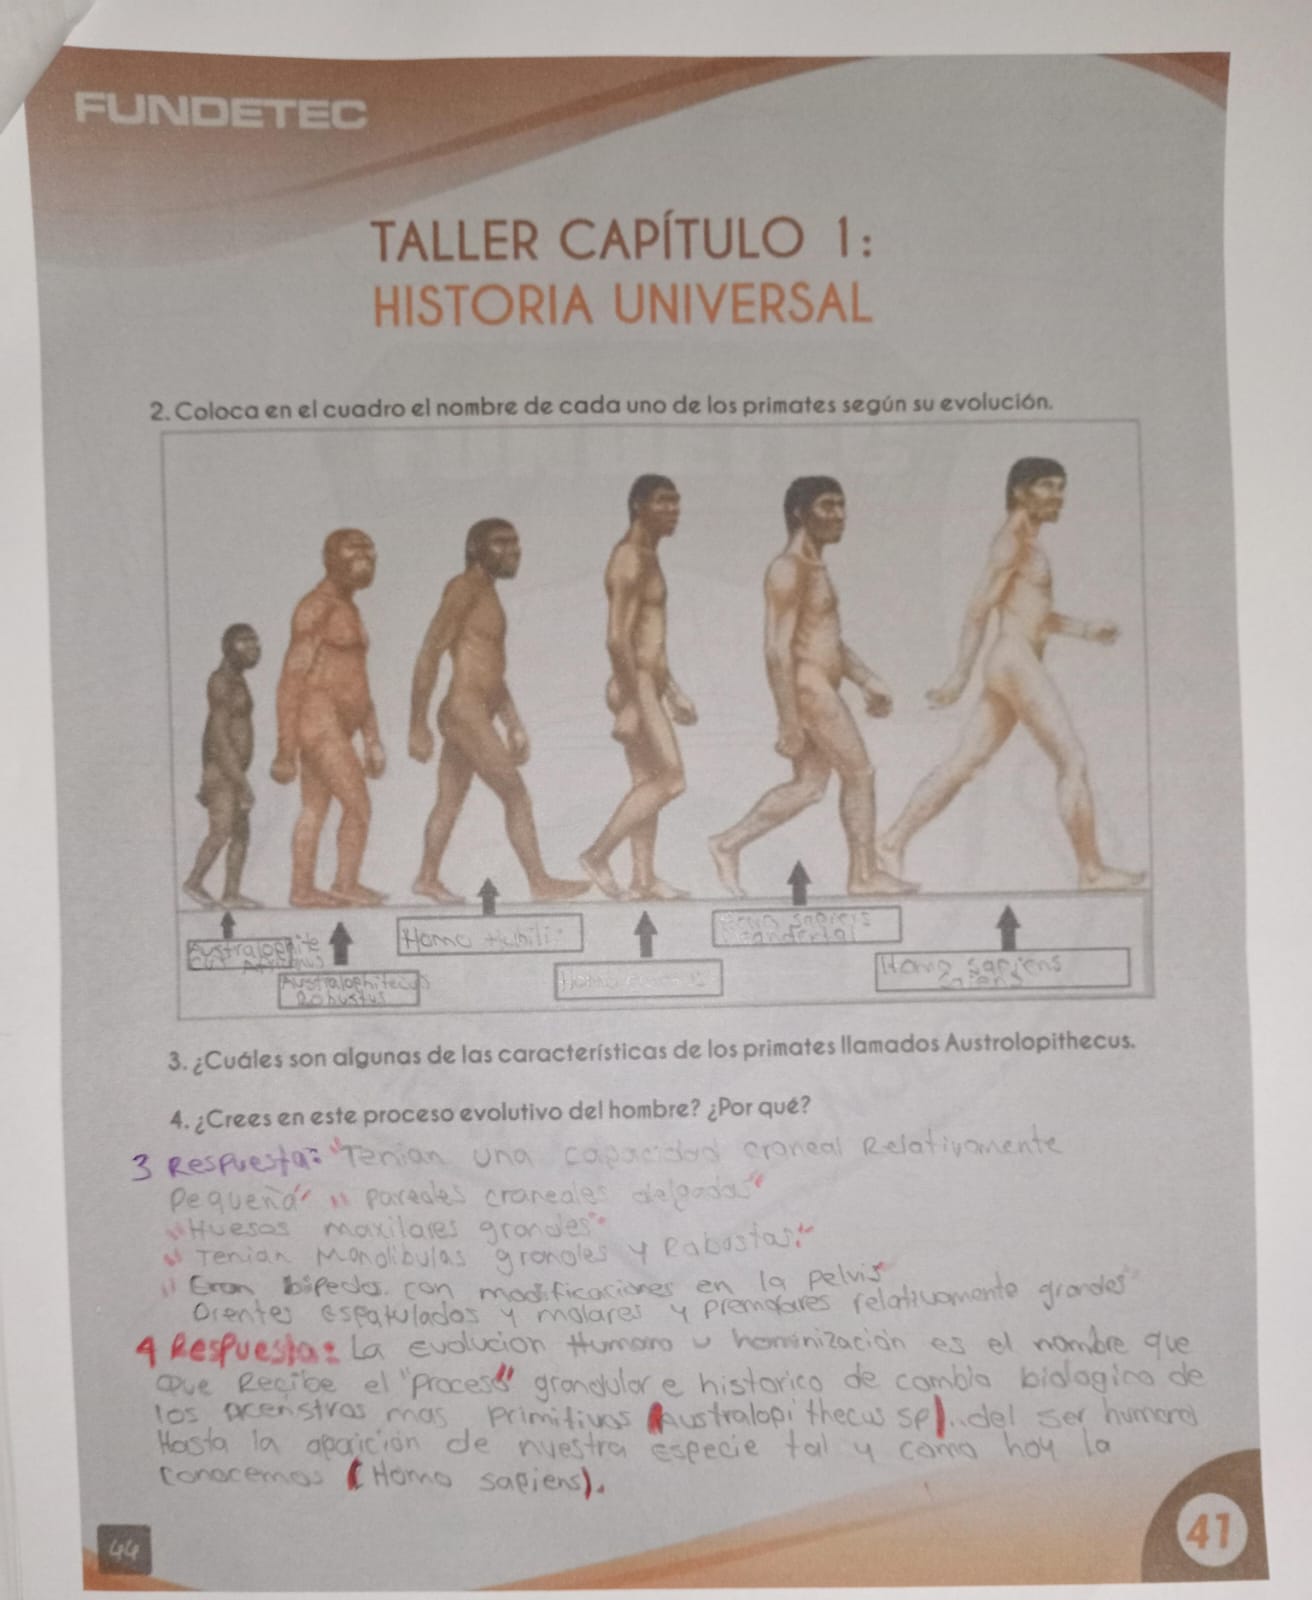 FUNDETEC
TALLER CAPÍTULO 1:
HISTORIA UNIVERSAL
2. Coloca en el cuadro el nombre de cada uno de los primates según su evolución.
Australophite
Cus
Homo Habilis
Homo sapiens
Australophitecus
Robustus
Homo
Homo sapiens
3. ¿Cuáles son algunas de las características de los primates llamados Austrolopithecus.
4. ¿Crees en este proceso evolutivo del hombre? ¿Por qué?
3 Respuesta: "Tenian una capacidad craneal Relativamente
Pequeña" " paredes craneales delgadas"
"Huesos maxilares grandes"
" Tenian Mandibulas grandes y Robostas."
" Eran bipedos. con modificaciones en la pelvis
Dientes espatulados y molares y premolares relativamente grandes"
4 Respuesta: La evolucion Humana u hominización es el nombre que
que Recibe el "Proceso" grandular e historico de cambio biologico de
los acenstros mas primitivos (Australopithecus sp)..del ser humano
Hasta la aparicion de nuestra especie tal y como hoy la
conocemos (Homo sapiens).
44
41